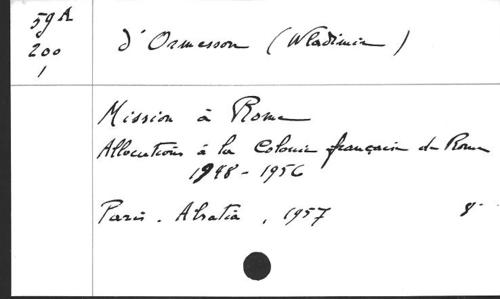 59 A
200
1
d'Ormesson (Wladimir)
Mission à Rome
Allocutions à la Colonie française de Rome
1948-1956
Paris. Alsatia, 1957 8°